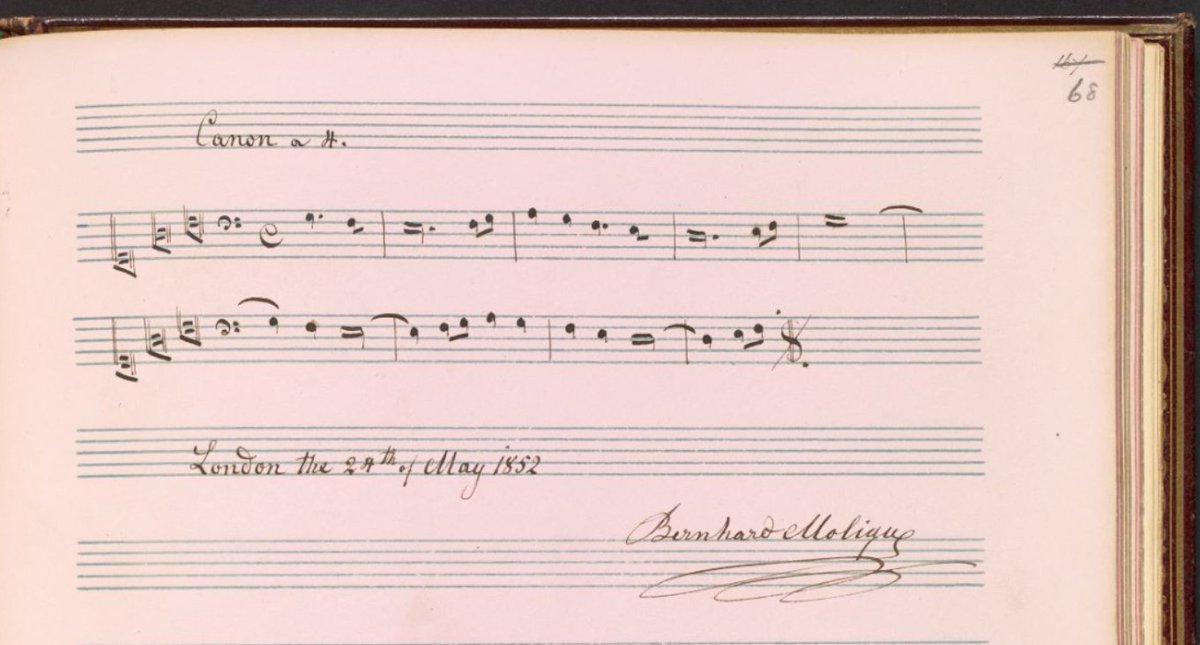 68
Canon a 4.
London the 24th of May 1852
Bernhard Molique